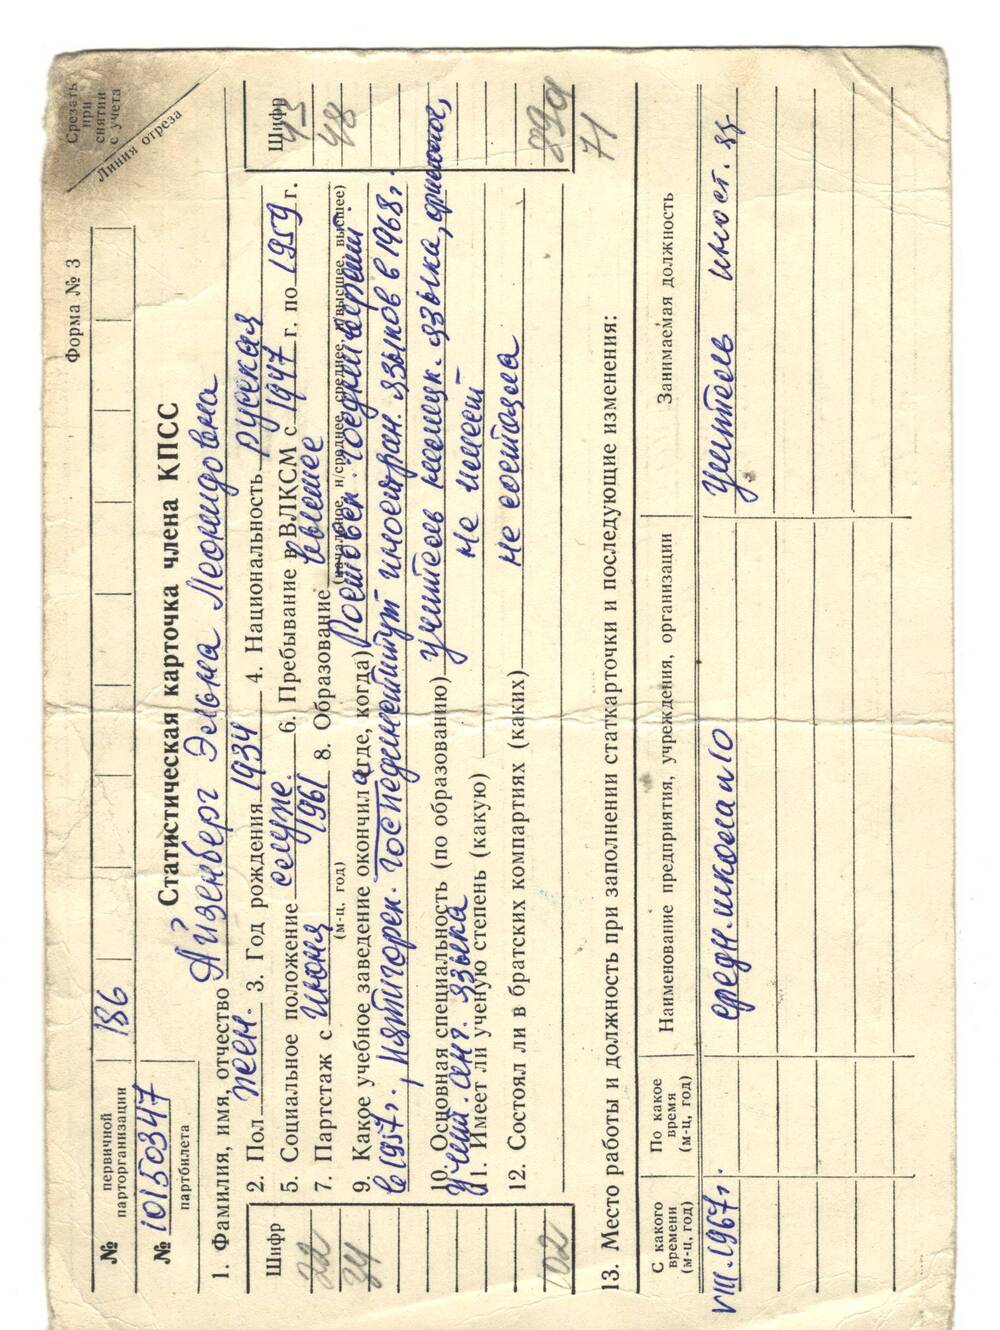 Форма № 3
Срезать
при
снятии
с учета
Линия отреза
№ первичной парторганизации 186
№ 10150347
партбилета
Статистическая карточка члена КПСС
1. Фамилия, имя, отчество Айзенберг Эльна Леонидовна
2. Пол жен. 3. Год рождения 1934 4. Национальность русская
5. Социальное положение служ. 6. Пребывание в ВЛКСМ с 1947 г. по 1959 г.
7. Партстаж с июня 1961 8. Образование высшее
(м-ц, год) (начальное, н/среднее, среднее, н/высшее, высшее)
9. Какое учебное заведение окончила (где, когда) Ростовск. госуниверсит.
в 1957г., Пятигорск. госпединститут иностран. языков в 1968г.
10. Основная специальность (по образованию) учитель немецк. языка,
учит. анг. языка
11. Имеет ли ученую степень (какую) не имеет
12. Состоял ли в братских компартиях (каких) не состояла
Шифр
22
34
102
Шифр
43
48
89а
71
13. Место работы и должность при заполнении статкарточки и последующие изменения:
С какого времени (м-ц, год) По какое время (м-ц, год) Наименование предприятия, учреждения, организации Занимаемая должность
VIII.1967г. средн. школа №10 учитель иност. яз